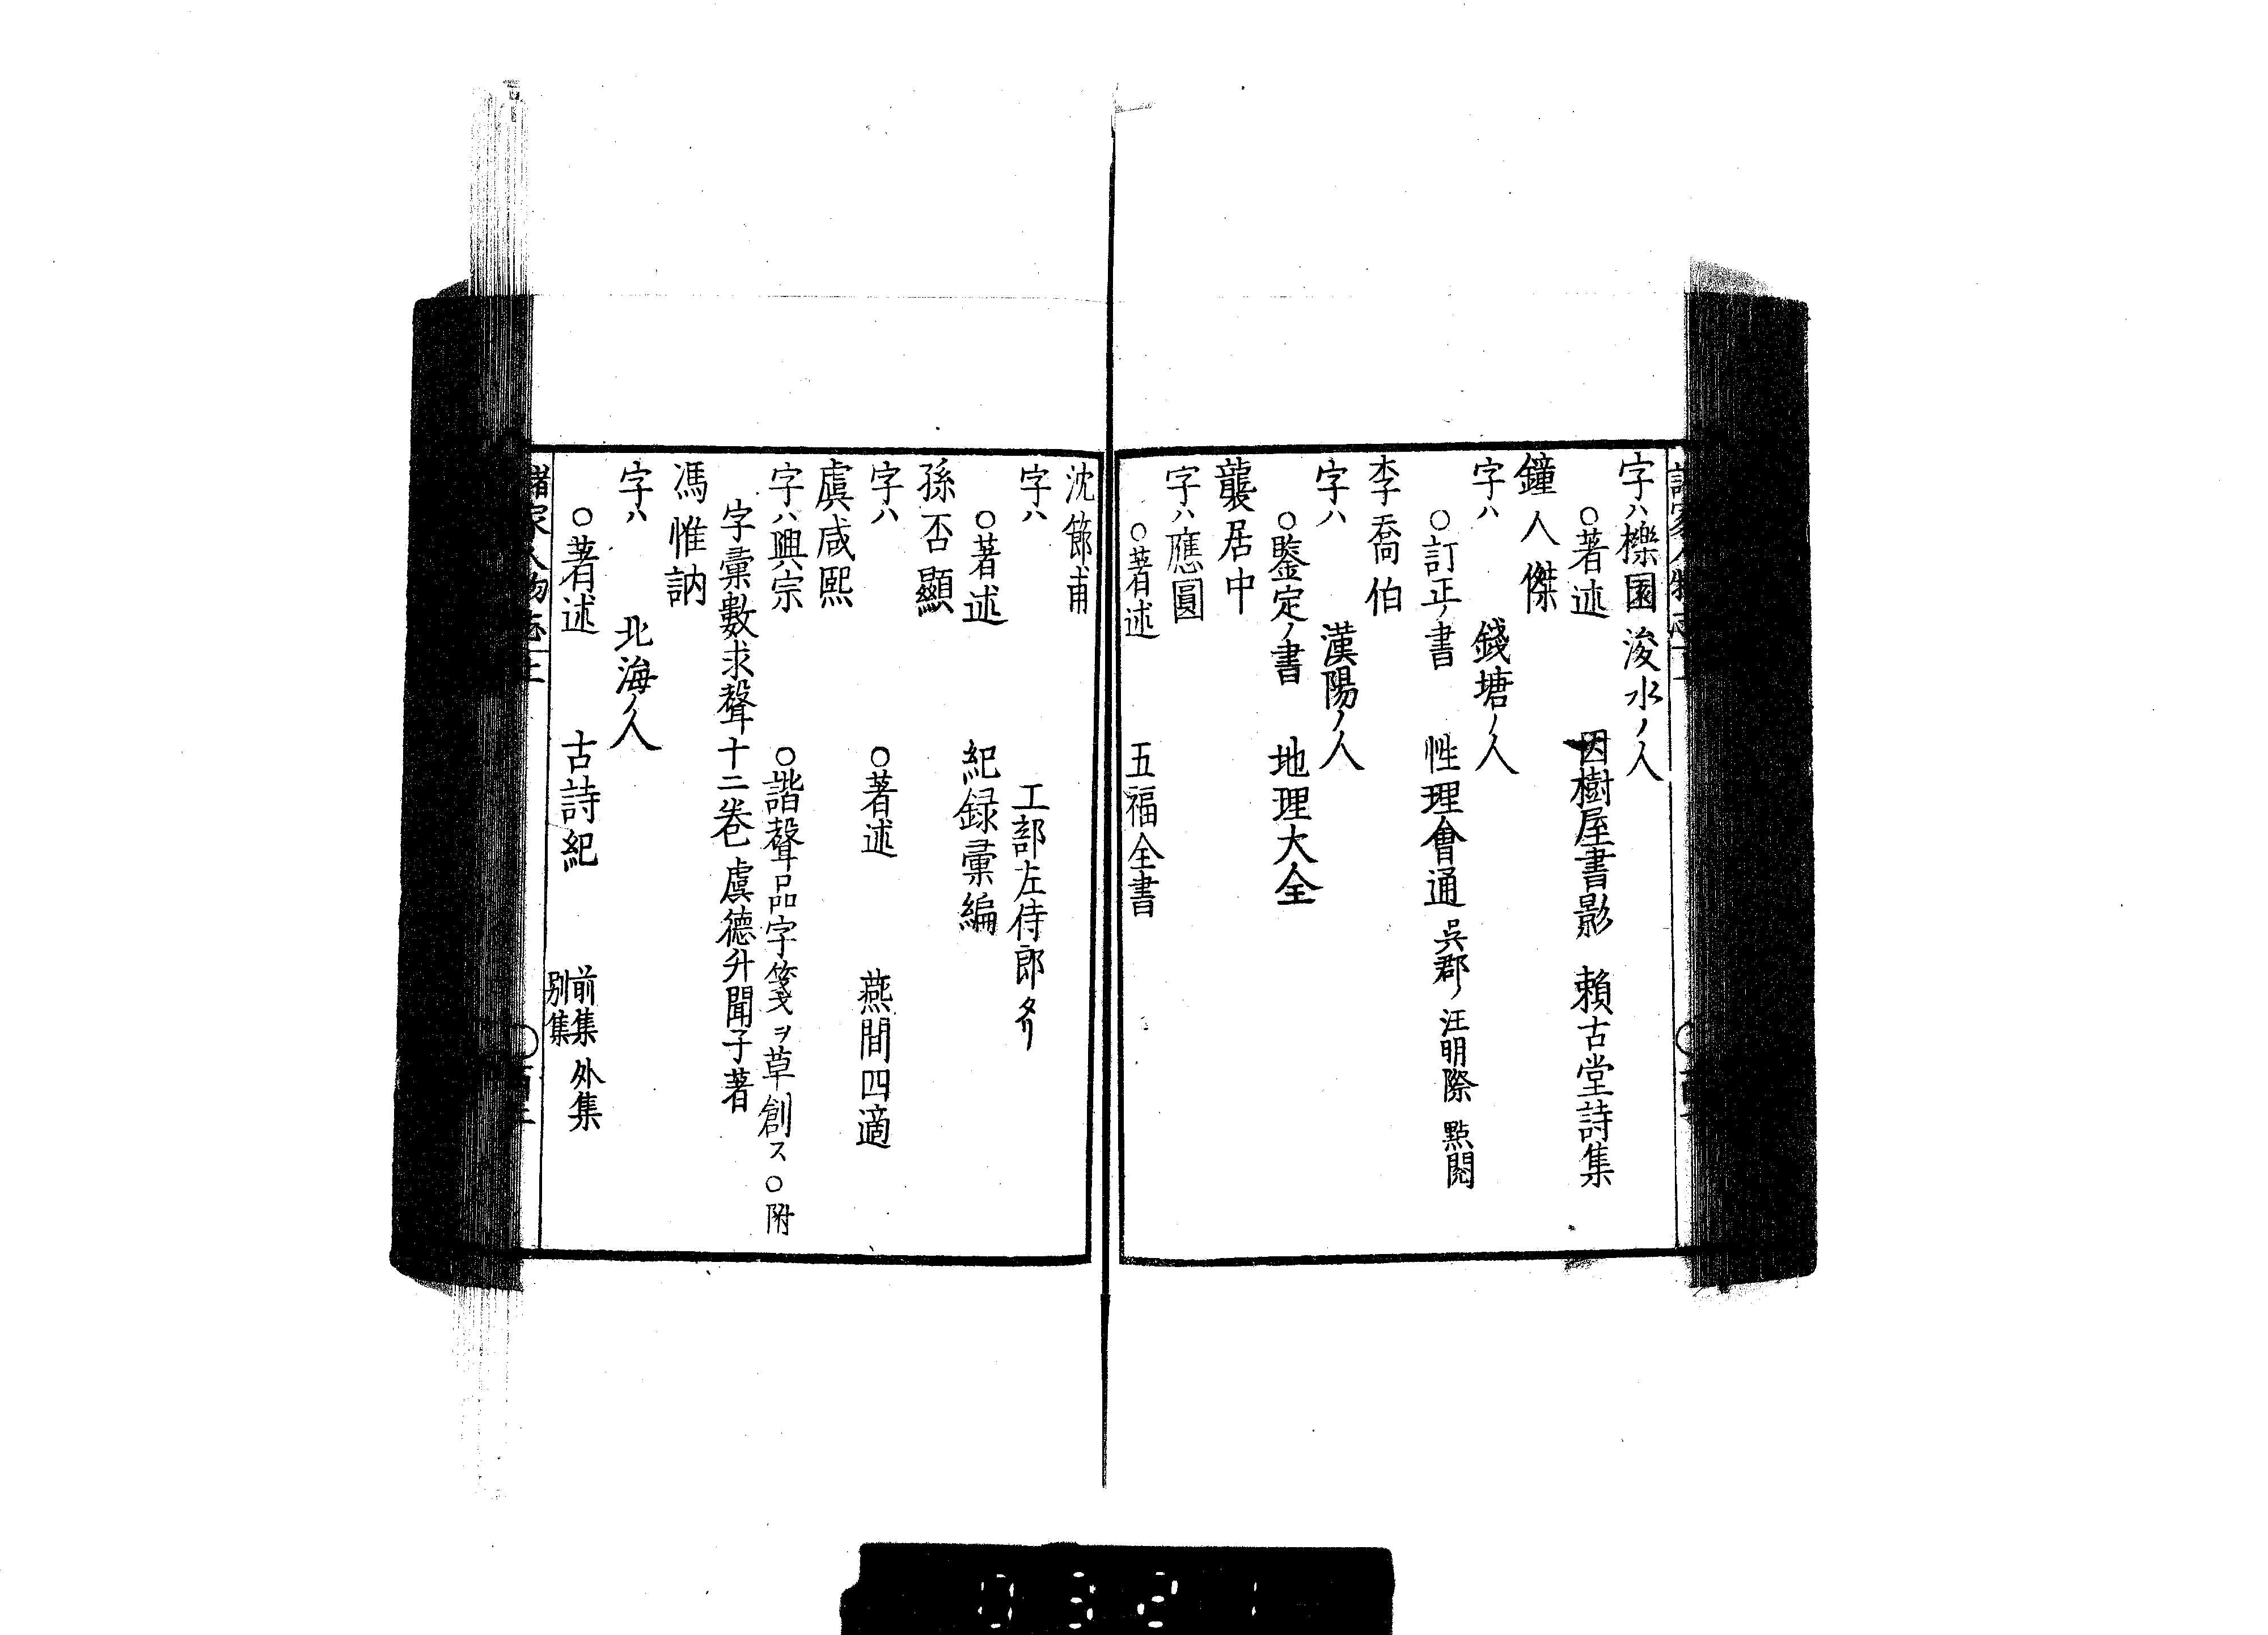 字ハ櫟園 浚水ノ人
○著述 因樹屋書影 賴古堂詩集
鐘人傑
字ハ 錢塘ノ人
○訂正ノ書 性理會通 呉郡ノ汪明際 點閱
李喬伯
字ハ 漢陽ノ人
○鑒定ノ書 地理大全
龔居中
字ハ應圓
○著述 五福全書
沈節甫
字ハ 工部左侍郎タリ
○著述 紀録彙編
孫丕顯
字ハ ○著述 燕間四適
虞咸熙
字ハ興宗 ○諧聲品字箋ヲ草創ス ○附
字彙數求聲十二卷 虞德升聞子著
馮惟訥
字ハ 北海ノ人
○著述 古詩紀 前集 外集
別集
諸家人物志上
0321